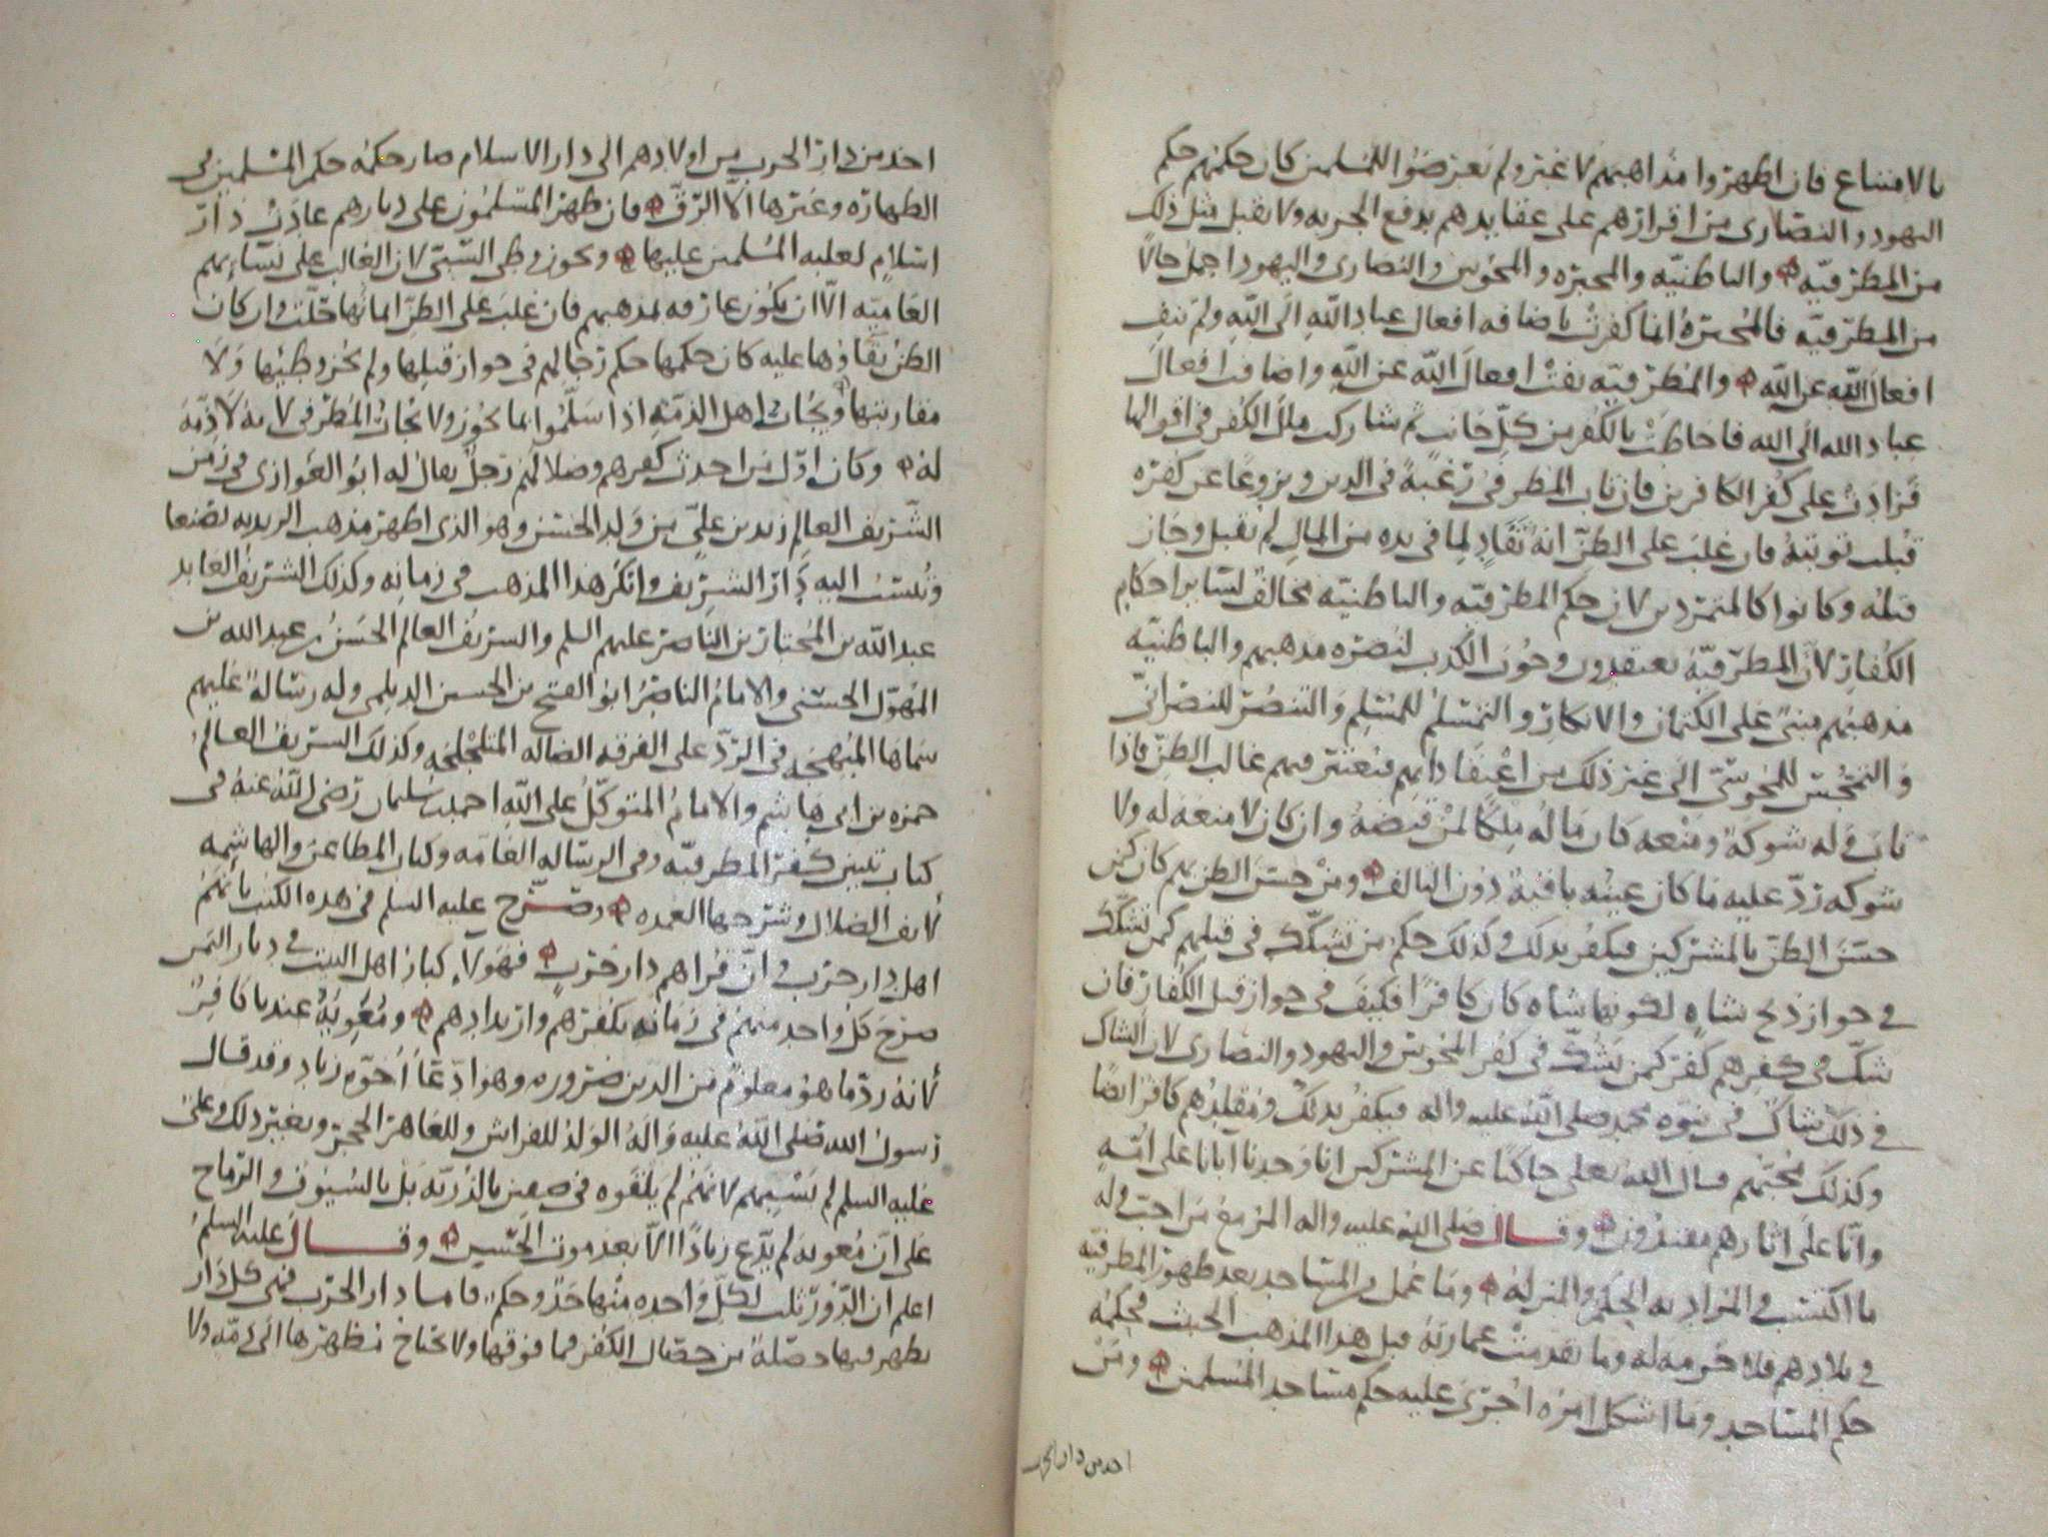 بالامتناع فان اظهروا مذاهبهم لا غير ولم يعرضوا للمسلمين كان حكمهم حكم
اليهود والنصارى من اقرارهم على عقايدهم بدفع الجزيه ولا يقبل مثل ذلك
من المطرفيه والباطنيه والمجبره والمجوس والنصارى واليهود اجمل حالا
من المطرفيه فالمجبرة انما كفرت باضافه افعال عباد الله الى الله ولم تنف
افعال الله عن الله والمطرفيه نفت افعال الله عن الله واضافت افعال
عباد الله الى الله فاحاطت بالكفر من كل جانب ثم شاركت ملل الكفر في اقوالها
فزادت على كفر الكافرين فان تاب المطرفي رغبة في الدين ونزوعا عن كفره
قبلت توبته فان غلب على الظن انه تفاد لما في يده من المال لم تقبل وجاز
قتله وكانوا كالمتمردين لان حكم المطرفيه والباطنيه مخالف لسائر احكام
الكفار لان المطرفيه يعتقدون وجوب الكذب لنصره مذهبهم والباطنيه
مذهبهم مبنى على الكتمان والانكار والتمسلم للمسلم والتنصر للنصرانى
والتمجس للمجوسى الى غير ذلك من اعتقاداتهم فيعتبر فيهم غالب الظن فاذا
تاب وله شوكة ومنعه كان ماله ملكا لمن قبضه وان كان لا منعه له ولا
شوكه رد عليه ما كان عينه باقية دون التالف ومن حسن الظن بهم كان كمن
حسن الظن بالمشركين فيكفر بذلك وكذلك حكم من تشكك في قتلهم كمن تشكك
في جواز ذبح شاه لكونها شاه كان كافرا فكيف في جواز قتل الكفار فان
شك في كفرهم كفر كمن يشك في كفر المجوس واليهود والنصارى لان الشاك
في ذلك شاك في نبوه محمد صلى الله عليه واله فيكفر بذلك ومقلدهم كافر ايضا
وكذلك محبهم قال الله تعلى حاكيا عن المشركين انا وجدنا آبانا على امة
وانا على اثارهم مقتدون وقال صلى الله عليه واله المر مع من احب وله
ما اكتسب والمراد به الحكم والمنزله وما عمل من المساجد بعد ظهور المطرفيه
في بلادهم فلا حرمه له وما تقدمت عمارته قبل هذا المذهب الخبيث فحكمه
حكم المساجد وما اشكل امره اجرى عليه حكم مساجد المسلمين ومن
اخذ من دار الحرب
اخذ من دار الحرب من اولادهم الى دار الاسلام صار حكمه حكم المسلمين في
الطهاره وغيرها الا الرق فان ظهر المسلمون على ديارهم عادت دار
اسلام لغلبه المسلمين عليها ويجوز وطى السبى لان الغالب على نسايهم
العاميه الا ان يكون عارفه بمذهبهم فان غلب على الظن ايمانها حلت وان كان
الظن بقاوها عليه كان حكمها حكم رجالهم في جواز قتلها ولم يجز وطيها ولا
مقاربتها ويجاب اهل الذمه اذا سلموا بما يجوز ولا يجاب المطرفي لانه لا ذمة
له وكان اول من احدث كفرهم وضلالهم رجل يقال له ابو الغوازى في زمن
الشريف العالم زيد بن على من ولد الحسن وهو الذى اظهر مذهب الزيديه بصنعا
وتنسب اليه دار الشريف وانكر هذا المذهب في زمانه وكذلك الشريف العابد
عبد الله بن المختار بن الناصر عليهم السلم والشريف العالم الحسن بن عبد الله بن
المهول الحسنى والامام الناصر ابو الفتح بن الحسين الديلمى وله رسالة عليهم
سماها المبهجه في الرد على الفرقه الضاله المتلجلجه وكذلك الشريف العالم
حمزه بن ابى هاشم والامام المتوكل على الله احمد بن سليمان رضى الله عنه في
كتاب تبيين كفر المطرفيه وفي الرساله العامه وكتاب المطاعن والهاشمه
لانف الضلال وشرحها العمده وصرح عليه السلم في هذه الكتب بانهم
اهل دار حرب وان قراهم دار حرب فهولاء كبار اهل البيت في ديار اليمن
صرح كل واحد منهم في زمانه بكفرهم وارتدادهم ومعوية عندنا كافر
لانه رد ما هو معلوم من الدين ضروره وهو ادعآ اخوة زياد وقد قال
رسول الله صلى الله عليه واله الولد للفراش وللعاهر الحجر وبغير ذلك وعلى
عليه السلم لم يسبهم لانهم لم يلقوه في صفين بالذريه بل بالسيوف والرماح
على ان معويه لم يدع زيادا الا بعد موت الحسين وقال عليه السلم
اعلم ان الدور ثلث لكل واحده منها حد وحكم فاما دار الحرب فهى كل دار
يظهر فيها خصلة من خصال الكفر فما فوقها ولا يحتاج مظهرها الى ذمه ولا